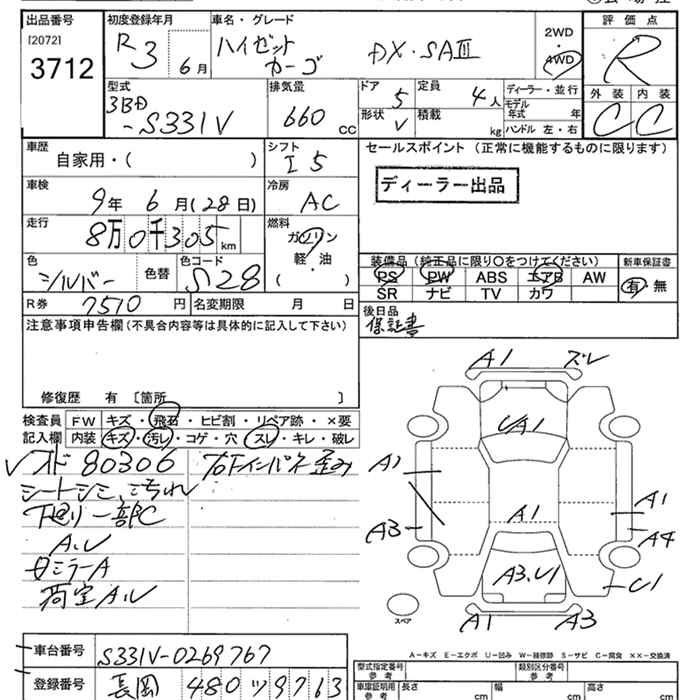 出品番号 初度登録年月 車名・グレード 評価点
[2072] 3712
R3 6月
ハイゼットカーゴ DX・SAIII
2WD
4WD
R
型式 排気量 ドア 定員 ディーラー・並行 外装 内装
3BD-S331V 660cc 5 4人
モデル年式 年
形状 V 積載 kg ハンドル 左・右
C C
車歴 シフト セールスポイント (正常に機能するものに限ります)
自家用・( ) I5
ディーラー出品
車検 冷房
9年6月(28日) AC
走行 燃料
8万0千305km ガソリン
軽・油
( ・ )
色 色替 色コード
シルバー S28
装備品 (純正品に限り○をつけてください) 新車保証書
PS PW ABS エアB AW 有・無
SR ナビ TV カワ
R券 7510円 名変期限 月 日
後日品
保証書
注意事項申告欄 (不具合内容等は具体的に記入して下さい)
修復歴 有 〔箇所 〕
検査員記入欄
FW キズ・飛石・ヒビ割・リペア跡・×要
内装 キズ・汚レ・コゲ・穴・スレ・キレ・破レ
80306
シートシミ、汚れ
下廻り一部C
A.U
ミラーA
荷室A.U
インパネ歪み
A1 ズレ
UA1
A1
A1
A3
A1
A4
A3.U1
U1
A1 A3
スペア
A-キズ E-エクボ U-凹み W-補修跡 S-サビ C-腐食 XX-交換済
車台番号 S331V-0269767
登録番号 長岡 480 ツ 9763
型式指定番号 参考 類別区分番号 参考
車庫証明用 参考 長さ cm 幅 cm 高さ cm